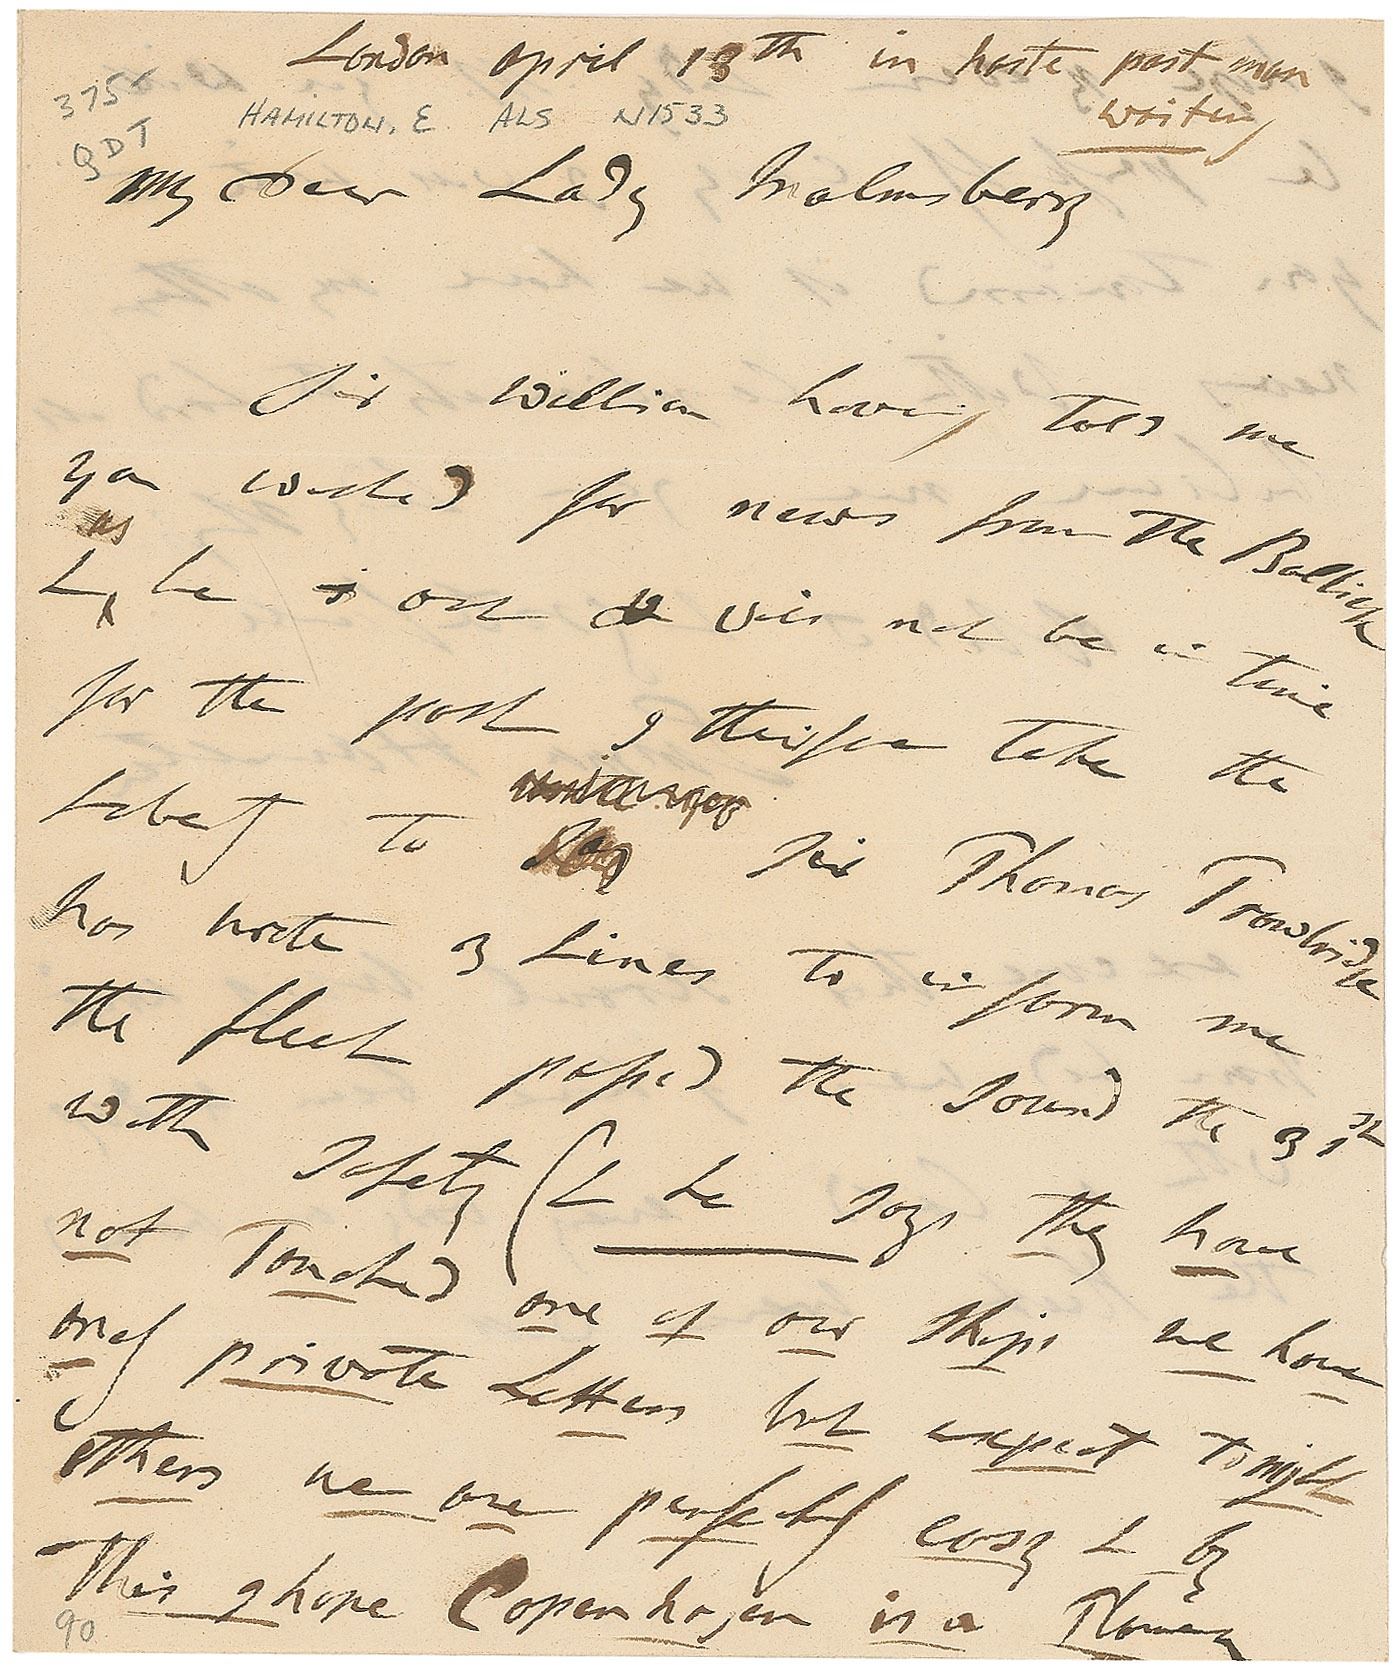 London april 13th in haste post man
waiting
375-
QDT
HAMILTON, E ALS N1533
my Dear Lady Malmsbery
Sir William having told me
you wished for news from the Baltick
as
& he is out & will not be in time
for the post I theirfore take the
Liberty to Sir Thomas Trowbridge
has wrote 3 Lines to inform me
the fleet passed the Sound the 31st
with Safety (& he says they have
not Touched one of our Ships we have
only private Letters but expect to night
others we are perfectly easy & by
this I hope Copenhagen is a Flaming
90